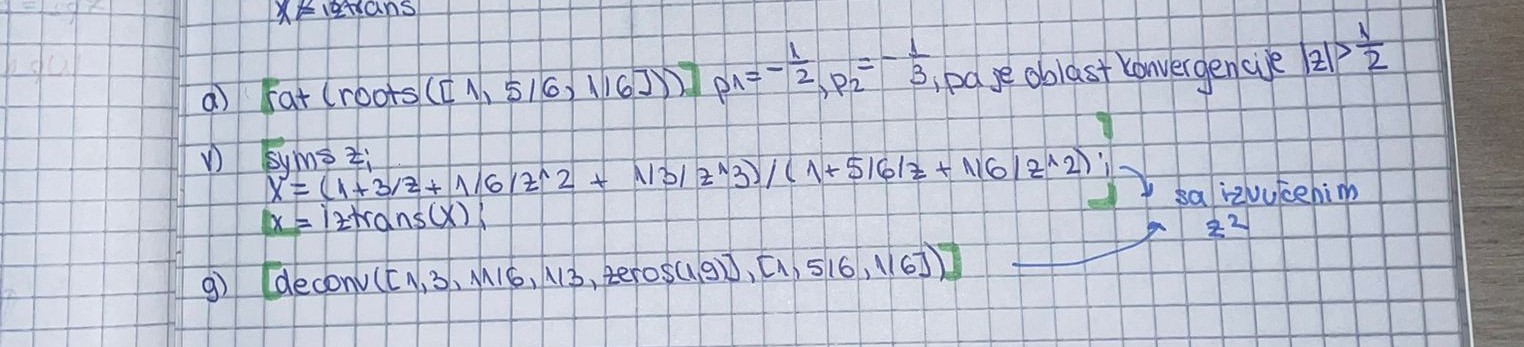 x = iztrans
a) [rat (roots([1, 5/6, 1/6]))] p1 = -1/2, p2 = -1/3, pa je oblast konvergencije |z| > 1/2
v) [syms z;
X = (1+3/z + 1/6/z^2 + 1/3/z^3)/(1+5/6/z + 1/6/z^2);] sa izvučenim z²
[x = iztrans(X);
g) [deconv([1, 3, 11/6, 1/3, zeros(1,9)], [1, 5/6, 1/6])]